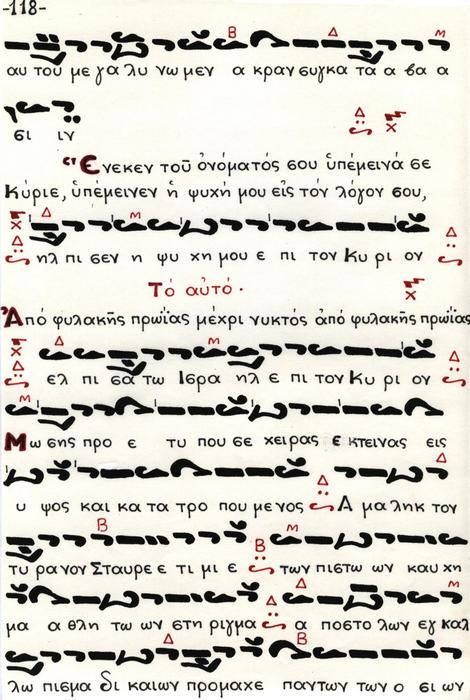 -118-
αυ του με γα λυ νω μεν α κραν συγκα τα α βα α
σι ιν
Ἕνεκεν τοῦ ὀνόματός σου ὑπέμεινά σε
Κύριε, ὑπέμεινεν ἡ ψυχή μου εἰς τόν λόγον σου,
ηλ πι σεν η ψυ χη μου ε πι τον Κυ ρι ον
Τό αὐτό.
Ἀπό φυλακῆς πρωΐας μέχρι νυκτός ἀπό φυλακῆς πρωΐας
ελ πι σα τω Ισρα ηλ ε πι τον Κυ ρι ον
Μω σης προ ε τυ που σε χειρας ε κτεινας εις
υ ψος και κα τα τρο που με νος Α μα ληκ τον
τυ ραννον Σταυρε ε τι μι ε των πιστω ων καυ χη
μα α θλη τω ων στη ριγμα α ποστο λων εγ καλ
λω πισμα δι καιων προμαχε παντων των ο σι ων